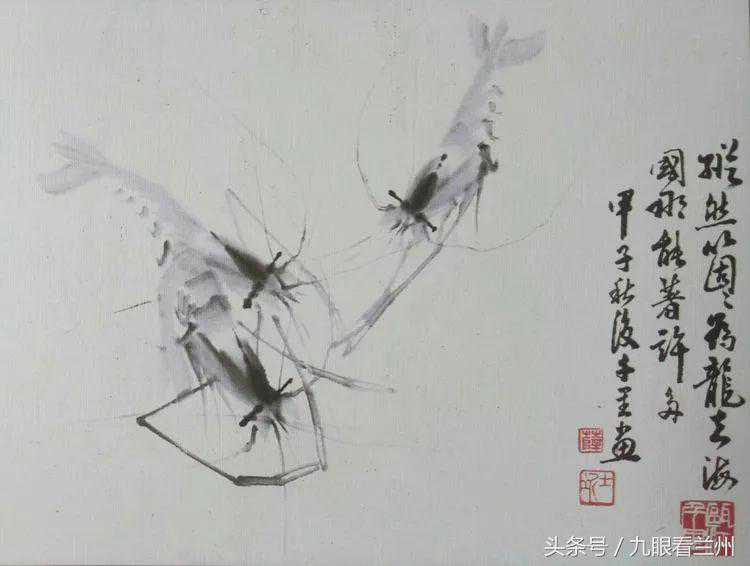 縱然箇〻為龍去海
國那能著許多
甲子秋後千里画
薛
头条号／九眼看兰州